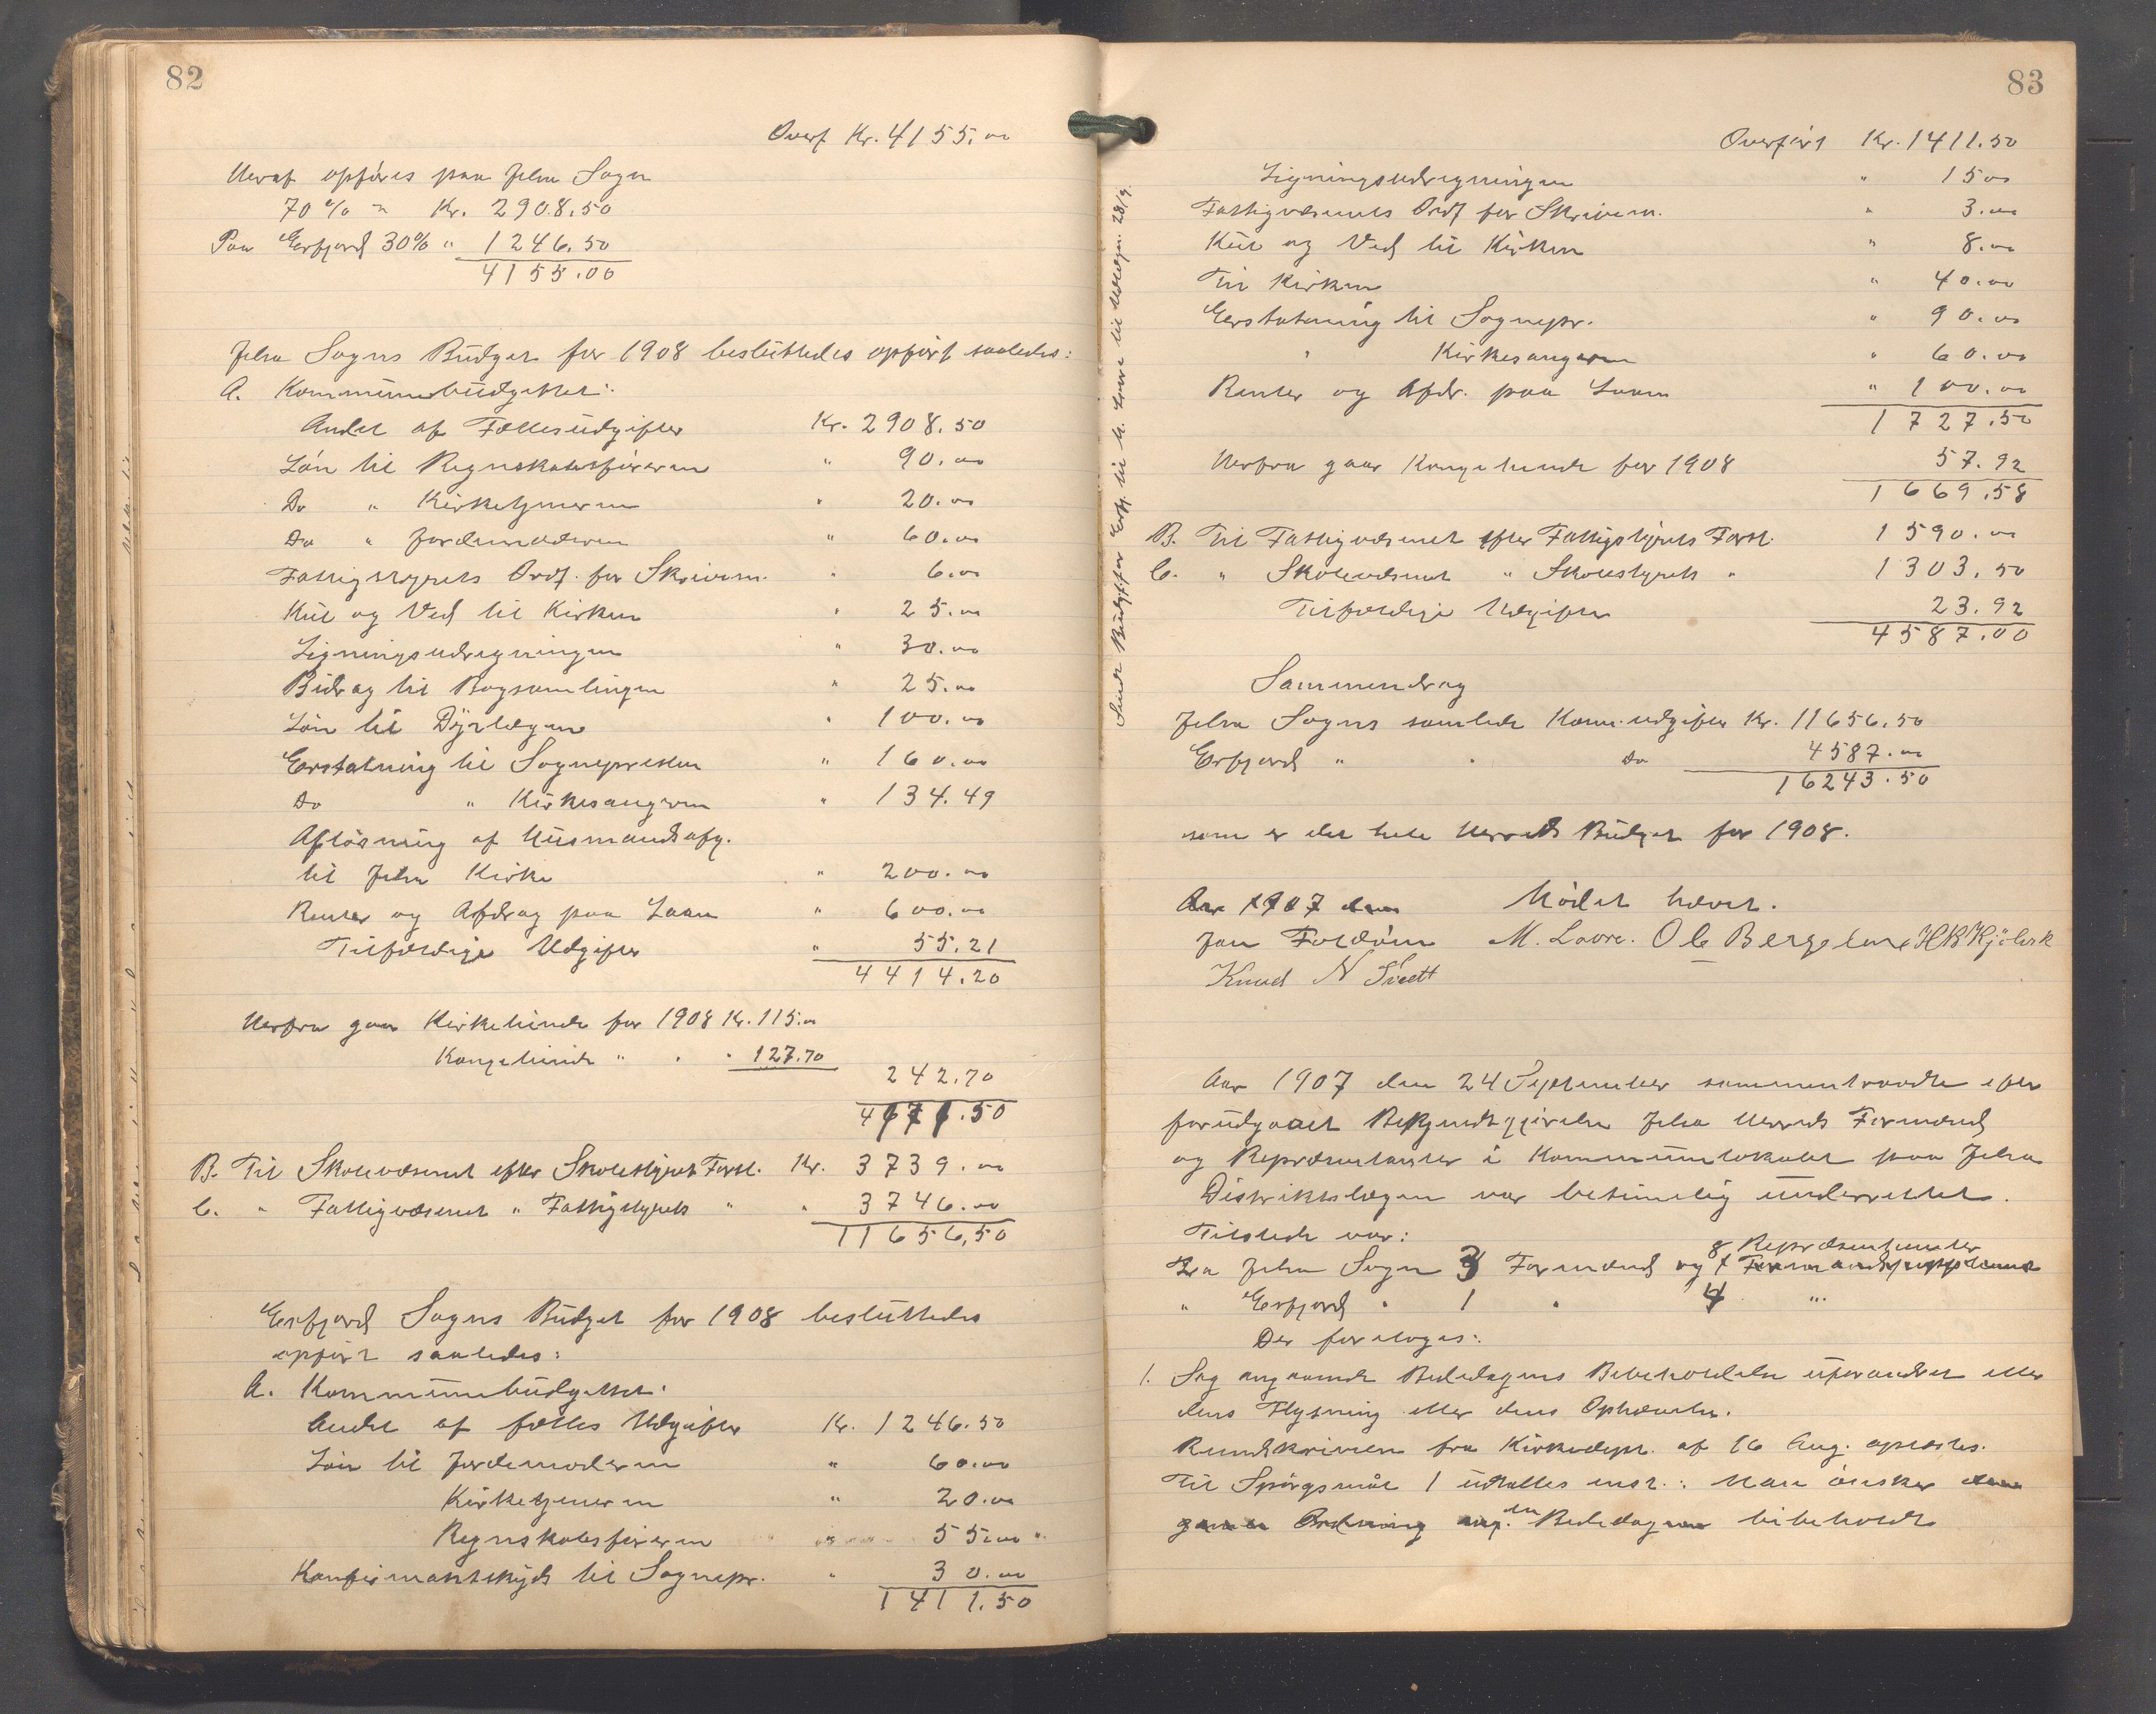 82
Overf Kr. 4155.00
Heraf opføres paa Jelsa Sogn
70% = Kr. 2908.50
Paa Erfjord 30% " 1246.50
4155.00
Jelsa Sogns Budget for 1908 besluttedes opført saaledes:
A. Kommunebudgettet:
Andel af Fællesudgifter Kr. 2908.50
Løn til Regnskabsføreren " 90.00
Do " Kirketjeneren " 20.00
Do " Jordemoderen " 60.00
Fattigstyrets Ordf. for Skrivem. " 6.00
Kul og Ved til Kirken " 25.00
Ligningsudregningen " 30.00
Bidrag til Bogsamlingen " 25.00
Løn til Dyrlægen " 100.00
Erstatning til Sognepresten " 160.00
Do " Kirkesangeren " 134.49
Afløsning af Husmandsafg.
til Jelsa Kirke " 200.00
Renter og Afdrag paa Laan " 600.00
Tilfældige Udgifter " 55.21
4414.20
Herfra gaar Kirketiende for 1908 Kr. 115.00
Kongetiende " " " 127.70
242.70
4171.50
B. Til Skolevæsenet efter Skolestyrets Forsl. Kr. 3739.00
C. " Fattigvæsenet " Fattigstyrets " " 3746.00
11656.50
Erfjord Sogns Budget for 1908 besluttedes
opført saaledes:
A. Kommunebudgettet:
Andel af fælles Udgifter Kr. 1246.50
Løn til Jordemoderen " 60.00
Kirketjeneren " 20.00
Regnskabsføreren " 55.00 "
Konfirmantskyds til Sognepr. " 30.00
1411.50
83
Overført Kr. 1411.50
Ligningsudregningen " 15.00
Fattigvæsenets Ordf for Skrivem. " 3.00
Kul og Ved til Kirken " 8.00
Til Kirken " 40.00
Erstatning til Sognepr. " 90.00
" Kirkesangeren " 60.00
Renter og Afdr. paa Laan " 100.00
1727.50
Herfra gaar Kongetiende for 1908 57.92
1669.58
B. Til Fattigvæsenet efter Fattigstyrets Forsl. 1590.00
C. " Skolevæsenet " Skolestyrets " 1303.50
Tilfældige Udgifter 23.92
4587.00
Sammendrag
Jelsa Sogns samlede Komm.udgifter Kr. 11656.50
Erfjord " " Do 4587.00
16243.50
som er det hele Herreds Budget for 1908.
Aar 1907 den Mødet hævet.
Jon Foldøen M. Lovre. Ole Bergeland
Knud N
Aar 1907 den 24 September sammentraadte efter
forudgaaet Bekjendtgjørelse Jelsa Herreds Formænd
og Repræsentanter i Kommunelokalet paa Jelsa
Distriktslægen var betimelig underrettet.
Tilstede var:
8 Repræsentanter
Fra Jelsa Sogn 3 Formænd og
" Erfjord " 1 " 4 "
Der foretoges:
1. Sag angaaende Bededagens Bibeholdelse uforandret eller
dens Flytning eller dens Ophævelse.
Rundskrivelse fra Kirkedept. af 16 Aug. oplæstes.
Til Spørgsmål 1 udtaltes enst.: Man ønsker den
gamle Ordning ang. en Bededagen bibeholdt